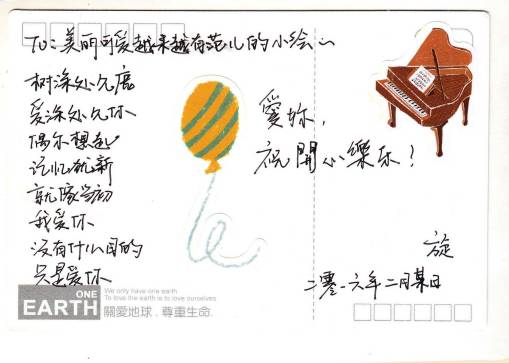 To: 美丽可爱越来越有范儿的小绘
树深处见鹿
爱深处见你
偶尔想起
记忆犹新
就像当初
我爱你
没有什么目的
只是爱你
愛妳，
祝開心樂乐！
旋
二零一六年二月某日
ONE
EARTH
We only have one earth
To love the earth is to love ourselves
關愛地球．尊重生命